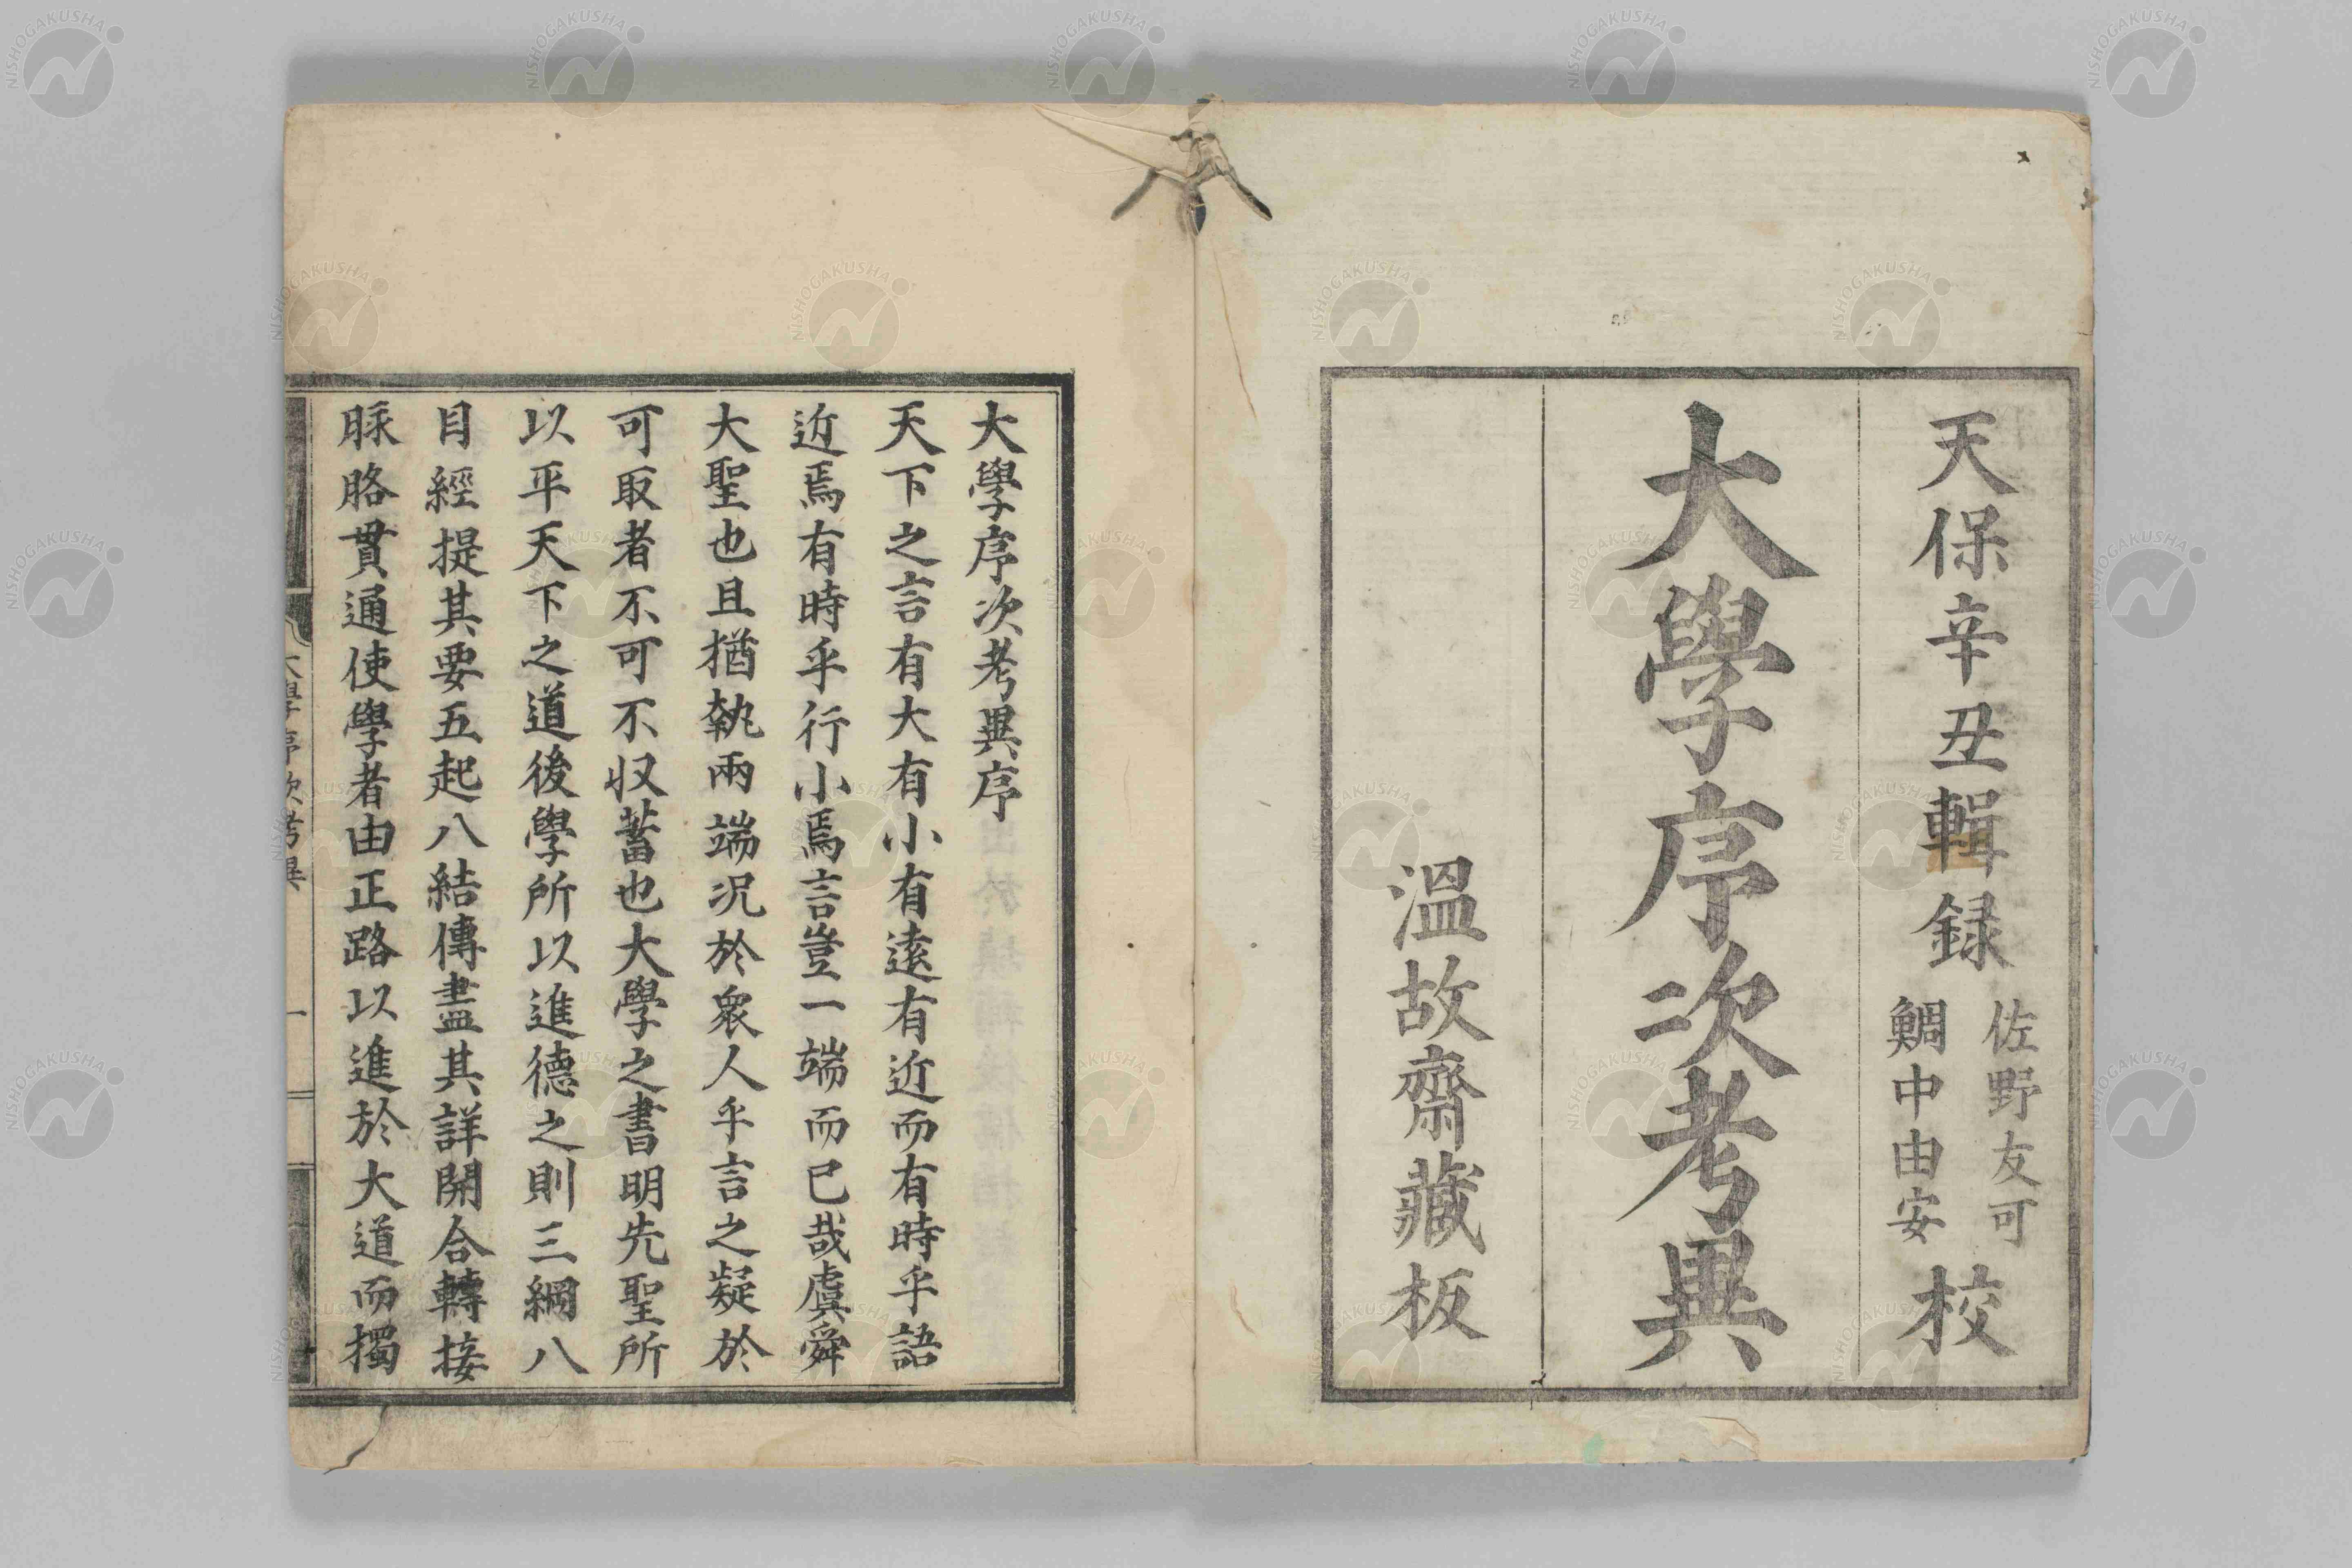 天保辛丑輯録
佐野友可
鯛中由安
校
大學序次考異
溫故齋藏板
大學序次考異序
天下之言有大有小有遠有近而有時乎語
近焉有時乎行小焉言豈一端而已哉虞舜
大聖也且猶執兩端况於衆人乎言之疑於
可取者不可不収蓄也大學之書明先聖所
以平天下之道後學所以進德之則三綱八
目經提其要五起八結傳盡其詳開合轉接
脉胳貫通使學者由正路以進於大道而獨
大學序次考異
一
NISHOGAKUSHA